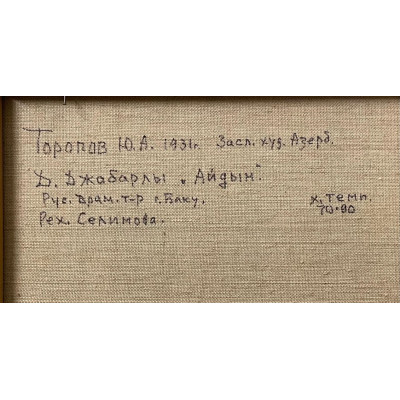 Торопов Ю.А. 1931г. Засл. худ. Азерб.
Д. Джабарлы „Айдын".
Рус. Драм. т-р г. Баку. х, темп.
Реж. Селимова. 70·90